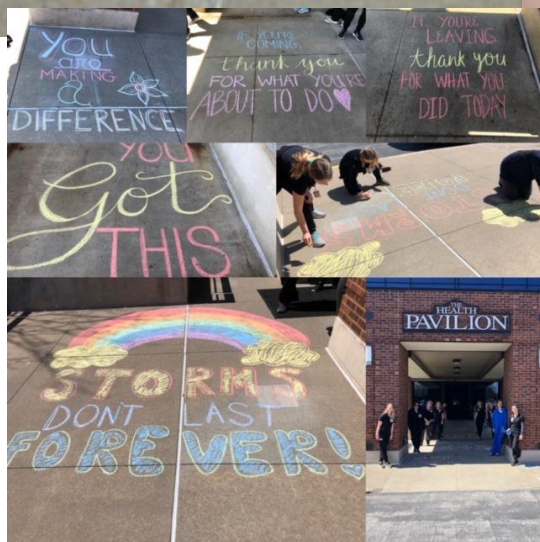 YOU
are
MAKING
a
DIFFERENCE
IF YOU'RE
COMING,
thank you
FOR WHAT YOU'RE
ABOUT TO DO
IF YOU'RE
LEAVING
thank you
FOR WHAT YOU
DID TODAY
YOU
Got
THIS
STORMS
DON'T LAST
FOREVER!
THE
HEALTH
PAVILION